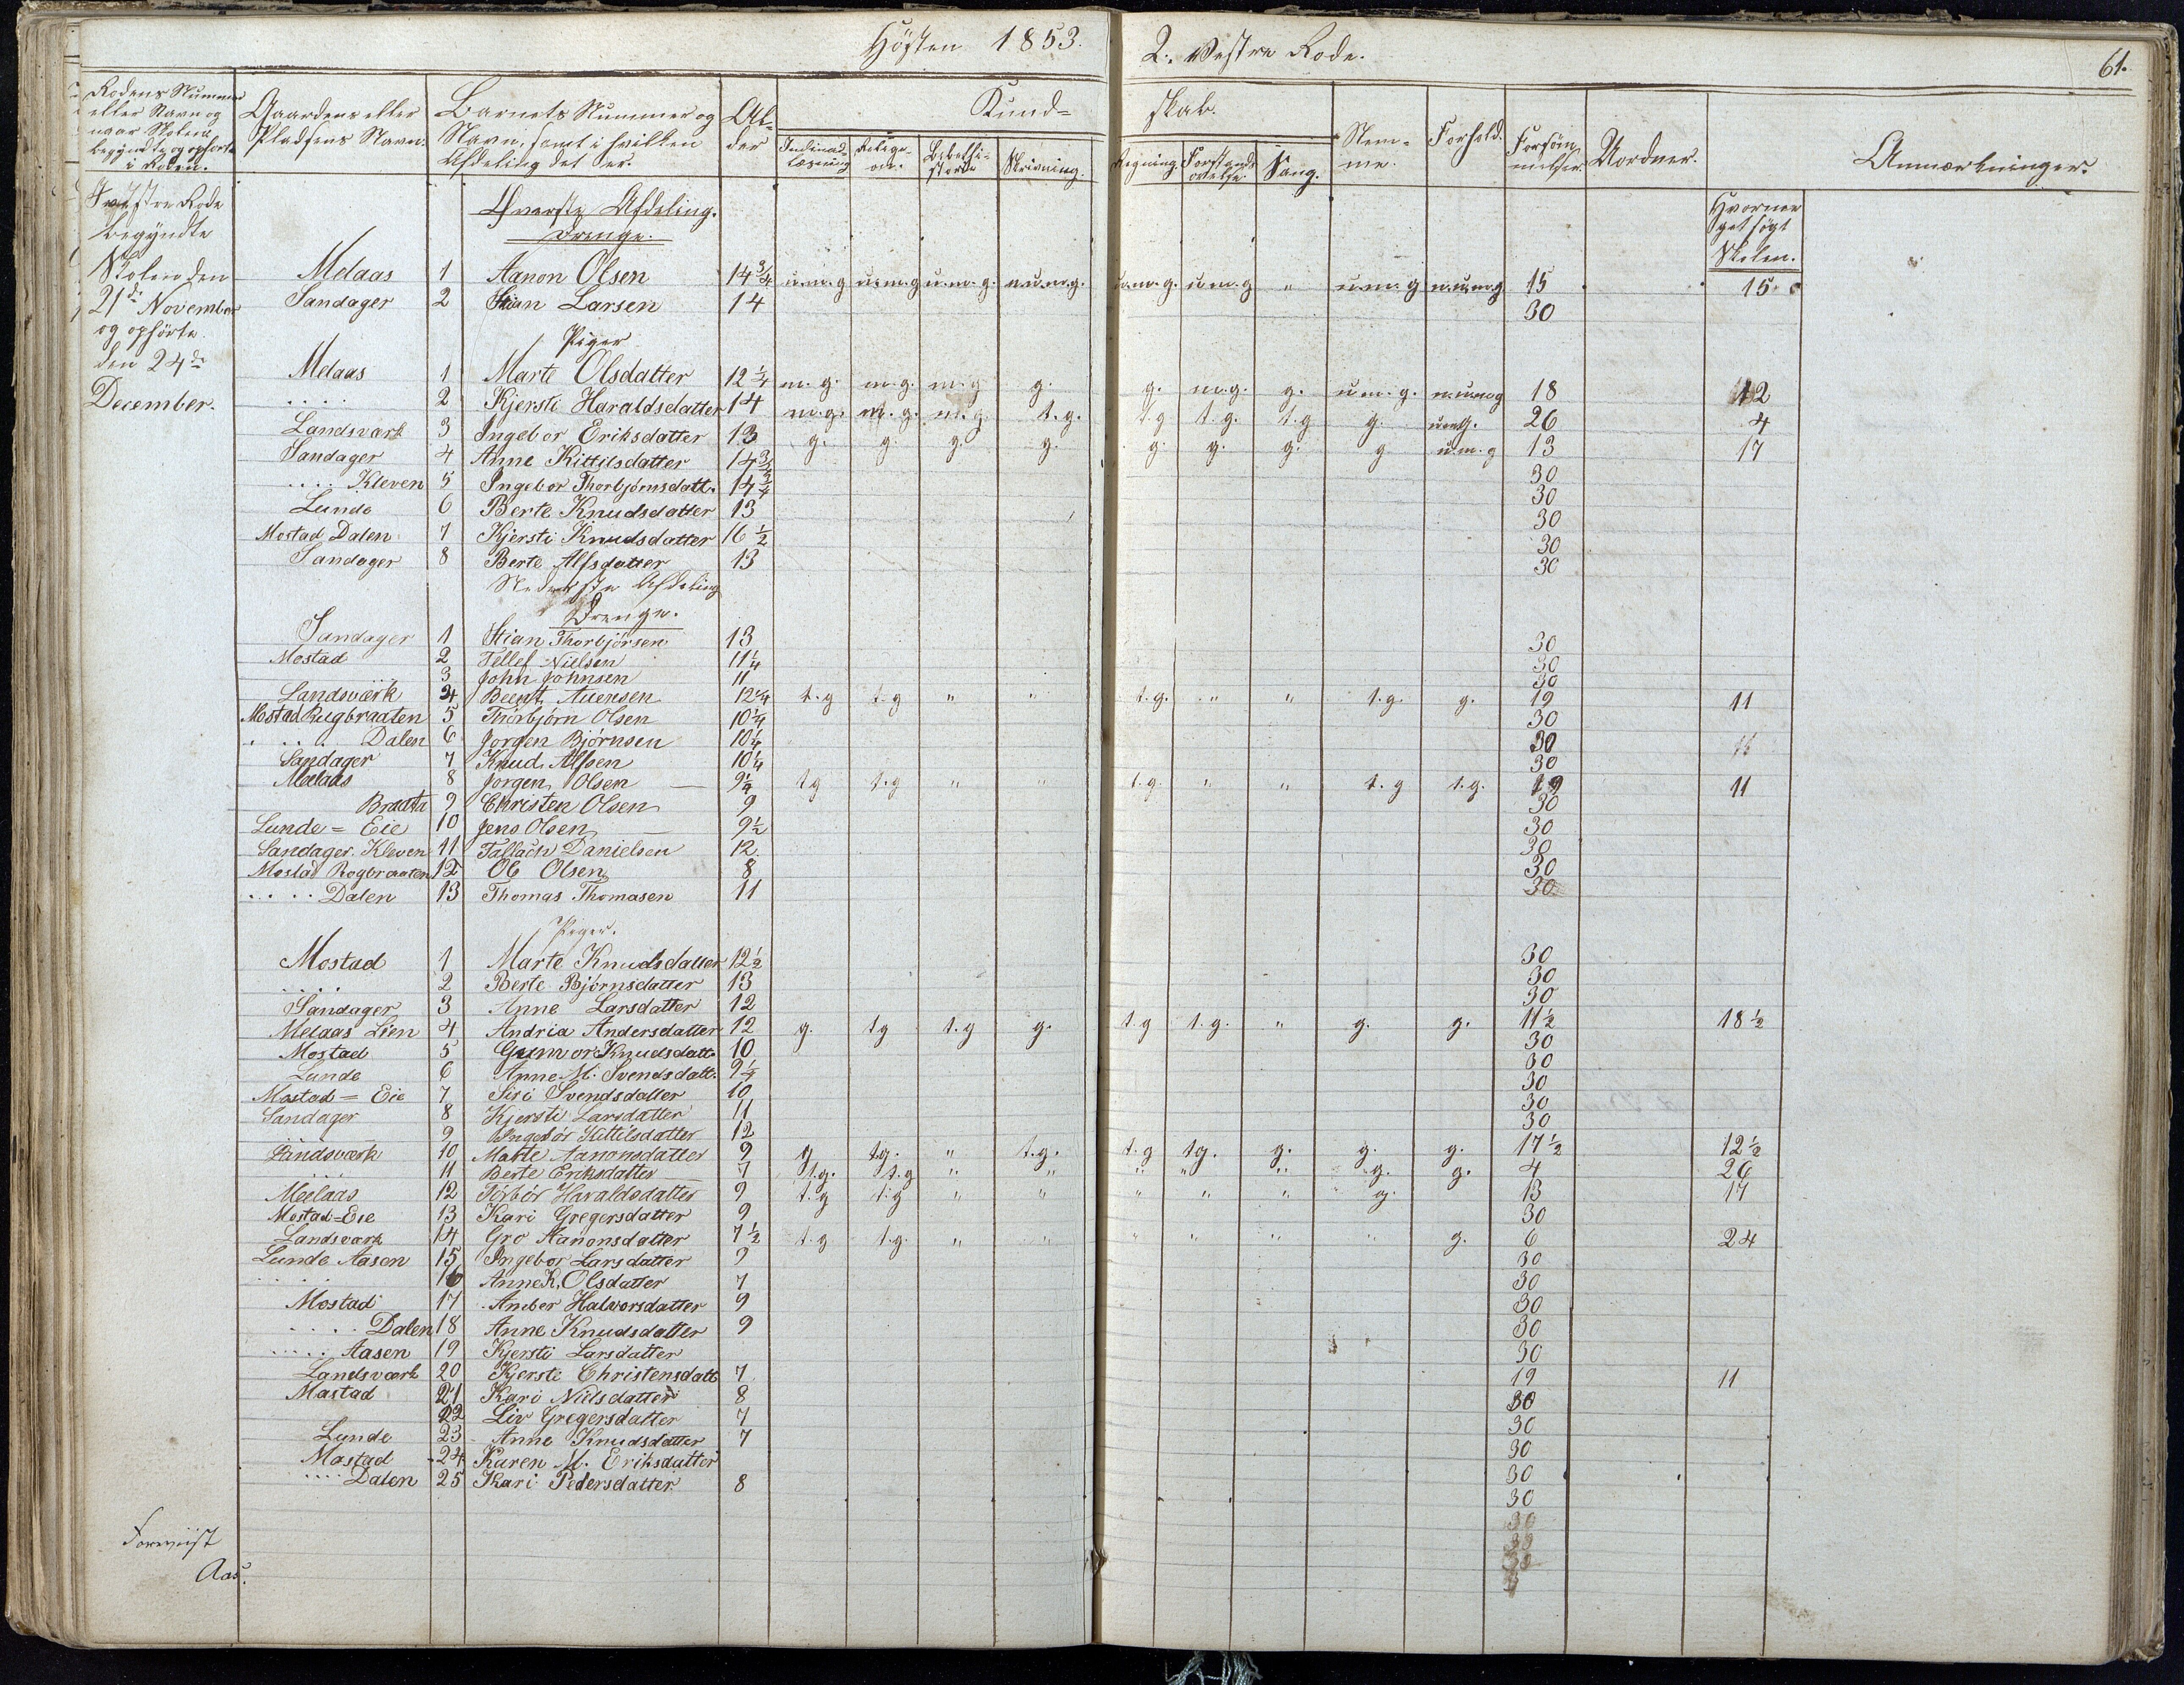 Høsten 1853. 2. Vestre Rode. 61.
Rodens Nummer eller Navn og naar Skolen begyndte og ophørte i Roden.
Gaardens eller Pladsens Navn.
Barnets Nummer og Navn, samt i hvilken Afdeling det er.
Alder
Kundskab.
Indenadlæsning Religion. Bibelhistorie Skrivning. Regning. Forstandsøvelse Sang.
Stemme. Forhold. Forsømmelser. Uordner. Anmærkninger.
I Vestre Rode begyndte Skolen den 21de November og ophørte den 24de December.
Hvormeget søgt Skolen.
Øverste Afdeling.
Drenge.
Melaas 1 Aanon Olsen 14 3/4 u.m.g u.m.g u.m.g. n.u.m.g. u.m.g. u.m.g " u.m.g n.u.m.g 15 15
Sandager 2 Stian Larsen 14 30
Piger
Melaas 1 Marte Olsdatter 12 1/4 m.g. m.g. m.g g. g. m.g. g. u.m.g. n.u.m.g 18 12
.... 2 Kjersti Haraldsdatter 14 m.g. m.g. m.g. t.g. t.g t.g. t.g g. u.m.g. 26 4
Landsværk 3 Ingebor Eriksdatter 13 g. g. g. g. g. g. g. g u.m.g 13 17
Sandager 4 Anne Kittilsdatter 14 3/4 30
.... Kleven 5 Ingebor Thorbjørnsdatt. 14 3/4 30
Lunde 6 Berte Knudsdatter 13 30
Mostad Dalen 7 Kjersti Knudsdatter 16 1/2 30
Sandager 8 Berte Alfsdatter 13 30
Nederste Afdeling
Drenge.
Sandager 1 Stian Thorbjørsen 13 30
Mostad 2 Tellef Nielsen 11 1/4 30
.... 3 John Johnsen 11 30
Landsværk 4 Beent Auensen 12 1/4 t.g t.g " " t.g. " " t.g. g. 19 11
Mostad Rugbraaten 5 Thorbjørn Olsen 10 1/4 30
.... Dalen 6 Jørgen Bjørnsen 10 1/4 30
Sandager 7 Knud Alfsen 10 1/4 30
Melaas 8 Jorgen Olsen 9 1/4 tg t.g " " t.g. " " t.g t.g. 19 11
Braata 9 Christen Olsen 9 30
Lunde = Eie 10 Jens Olsen 9 1/2 30
Sandager. Kleven 11 Tallach Danielsen 12. 30
Mostad Rogbraaten 12 Ole Olsen 8 30
.... Dalen 13 Thomas Thomasen 11 30
Piger.
Mostad 1 Marte Knudsdatter 12 1/2 30
.... 2 Berte Bjørnsdatter 13 30
Sandager 3 Anne Larsdatter 12 30
Melaas Lien 4 Andria Andersdatter 12 g. tg t.g g. t.g t.g. " g. g. 11 1/2 18 1/2
Mostad 5 Gunvor Knudsdatt. 10 30
Lunde 6 Anne M. Svendsdatt. 9 1/4 30
Mostad = Eie 7 Siri Svendsdatter 10 30
Sandager 8 Kjersti Larsdatter 11 30
.... 9 Ingebør Kittilsdatter 12 30
Landsværk 10 Marte Aanonsdatter 9 g tg. " t.g. t.g tg. g. g. g. 17 1/2 12 1/2
.... 11 Berte Eriksdatter 7 t.g. t.g " " " " " g. g. 4 26
Melaas 12 Torbør Haraldsdatter 9 t.g t.g " " " " " g. 13 17
Mostad=Eie 13 Kari Gregersdatter 9 30
Landsværk 14 Gro Aanonsdatter 7 1/2 t.g t.g. " " " " " " g. 6 24
Lunde Aasen 15 Ingebor Larsdatter 9 30
.... 16 Anne K. Olsdatter 7 30
Mostad 17 Amber Halvorsdatter 9 30
.... Dalen 18 Anne Knudsdatter 9 30
.... Aasen 19 Kjersti Larsdatter 30
Landsværk 20 Kjersti Christensdatt 7 19 11
Mastad 21 Kari Nielsdatter 8 30
22 Liv Gregersdatter 7 30
Lunde 23 Anne Knudsdatter 7 30
Mastad 24 Karen M. Eriksdatter 30
.... Dalen 25 Kari Pedersdatter 8 30
Foreviist
Aas.